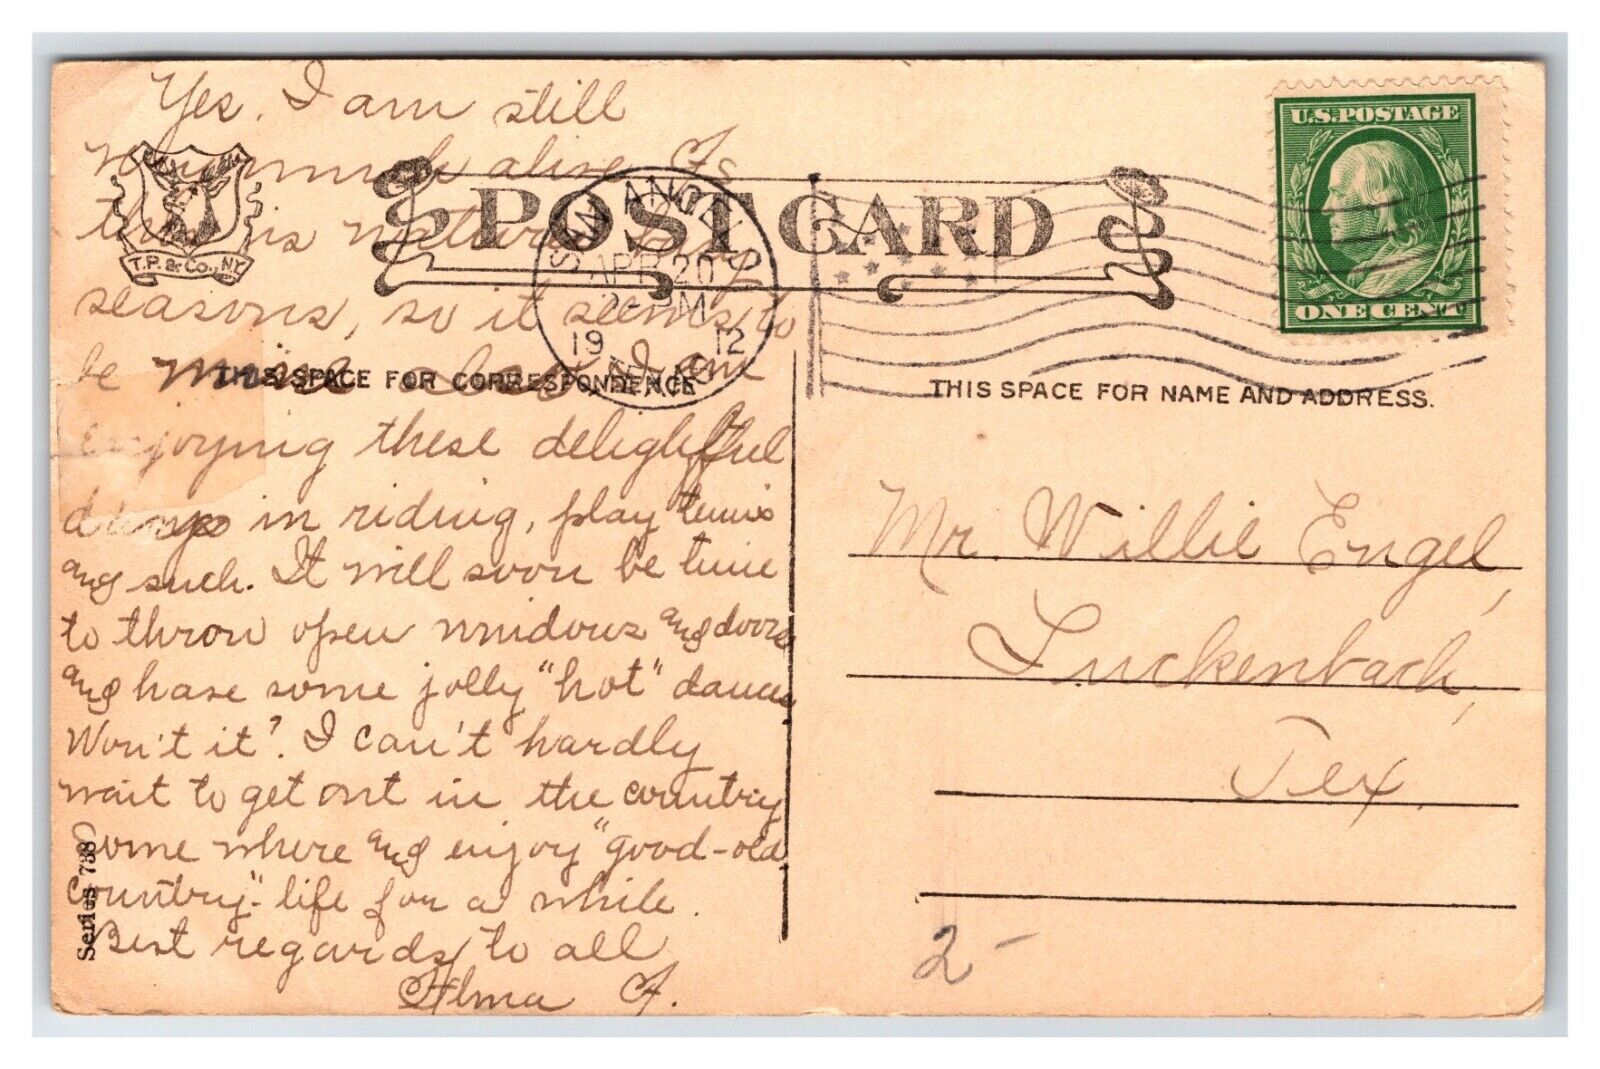 Yes, I am still
very much alive. As
this is nature's busy
seasons, so it seems to
be mine also. I am
enjoying these delightful
days in riding, play tennis
and such. It will soon be time
to throw open windows and doors
and have some jolly "hot" dances
Won't it? I can't hardly
wait to get out in the country
some where and enjoy "good-old
country"-life for a while.
Best regards to all
Alma F.
T.P. & Co., N.Y.
POST CARD
SAN ANGELO
APR 20
2- PM
19 12
THIS SPACE FOR CORRESPONDENCE
Series 738
U.S. POSTAGE
ONE CENT
THIS SPACE FOR NAME AND ADDRESS.
Mr. Willie Engel,
Luckenbach,
Tex.
2-